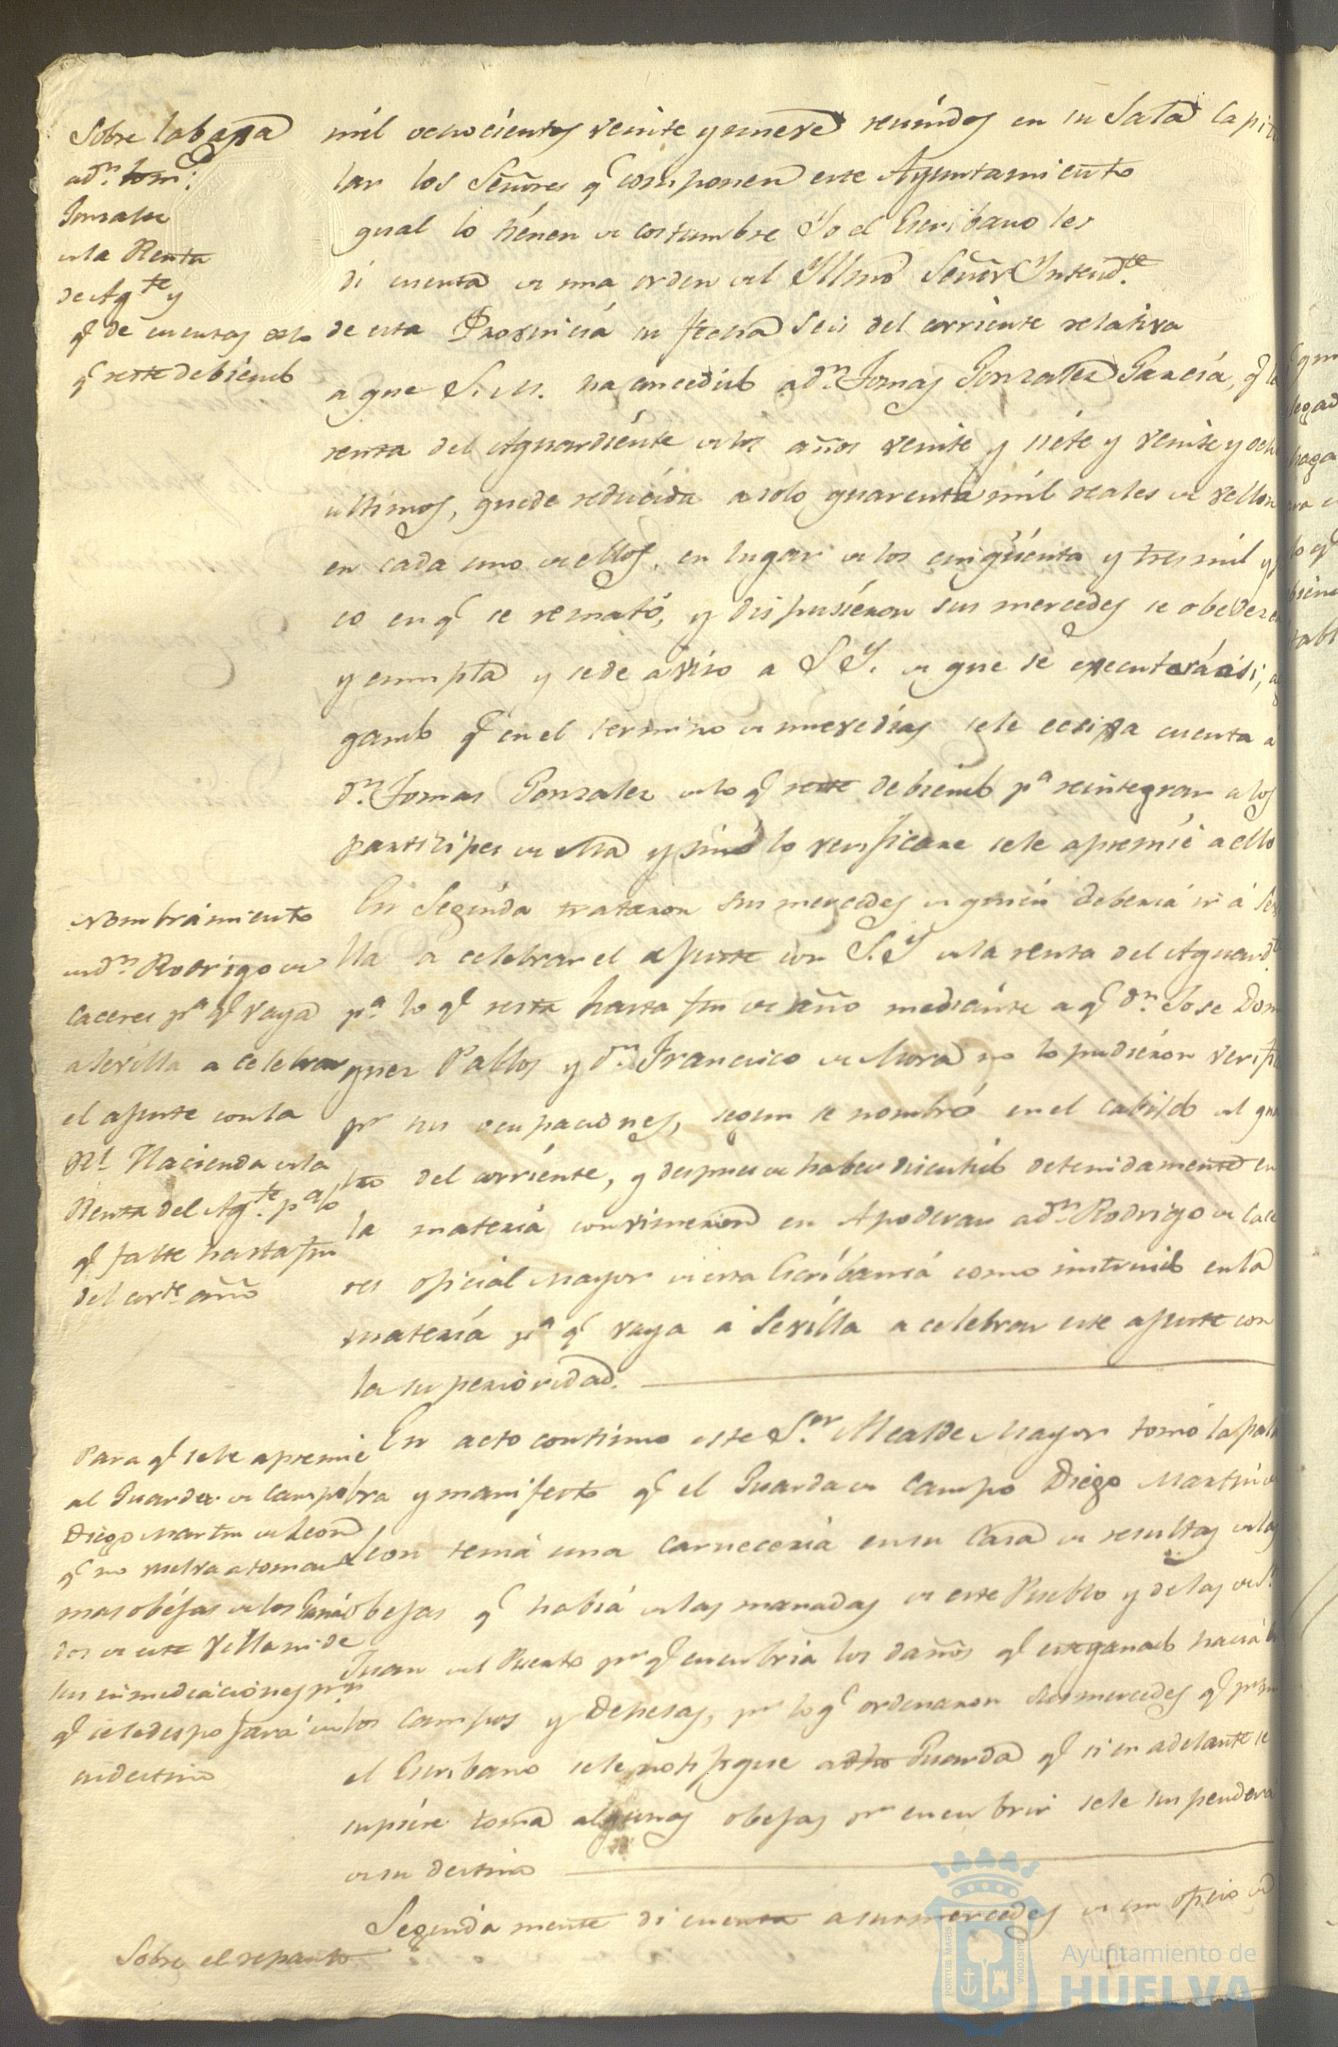 Sobre la baja
a dn. Tom.s
Gonzalez
en la Renta
de Agte y
q de cuentas de lo
q reste debiendo
mil ochocientos veinte y nueve reunidos en su Sala Capitu
lar los Señores q componen este Ayuntamiento
qual lo tienen de costumbre Yo el Escribano les
di cuenta de una orden del Yllmo Señor Intendte.
de esta Provincia su fecha Seis del corriente relativa
a que S. M. ha concedido a dn. Tomas Gonzalez Garcia, q la
renta del Aguardiente de los años veinte y siete y veinte y ocho
ultimos, quede reducida a solo quarenta mil reales de vellon
en cada uno de ellos, en lugar de los cinqüenta y tres mil y
co en q se remató, y dispusieron sus mercedes se obedezca
y cumpla y se de aviso a S Y. de que se executará asi,
gando q en el termino de nueve dias se le ecsija cuenta a
dn. Tomas Gonzalez de lo q reste debiendo pa reintegrar a los
participes de ella y sino lo verificare se le apremie a ello
Nombramiento
en dn. Rodrigo de
Caceres pa q vaya
a Sevilla a celebrar
el ajuste con la
Rl. Hacienda de la
Renta del Agte. pa lo
q falte hasta fin
del corte. año
En Seguida trataron sus mercedes de quien deberia ir á Sevi
lla a celebrar el ajuste con S. Y de la renta del Aguardte
pa. lo q resta hasta fin de año mediante a q dn. Jose Domin
guez Pablos y dn. Francisco de Mora no lo pudieron verifi
pr sus ocupaciones, segun se nombró en el cabildo del qua
tro del corriente, y despues de haber discutido detenidamente en
la materia convinieron en Apoderar a dn. Rodrigo de Cace
res oficial Mayor de esta Escribania como instruido en la
materia pa q vaya a Sevilla a celebrar este ajuste con
la superioridad.
Para q se le apremie
al Guarda de Campo
Diego Martin de Leon
q no vuelva a tomar
mas obejas de los Gana
dos de esta Villa ni de
sus inmediaciones pr
q se le despojara de
su destino
En acto continuo este Sor. Alcalde Mayor tomó la pala
bra y manifestó q el Guarda de Campo Diego Martin de
Leon tenia una Carneceria en su Casa de resultas de las
obejas q habia de las manadas de este Pueblo y de las de Sn
Juan del Puerto pr q encubria los daños q ese ganado hacia en
los Campos y Dehesas, pr lo q ordenaron sus mercedes q por mi
el Escribano se le notifique a dho Guarda q si en adelante se
supiere toma algunas obejas pr encubrir se le suspendera
de su destino
Sobre el reparto
Seguidamente di cuenta a sus mercedes de un oficio de
PORTUS MARIS
CUSTODIA
Ayuntamiento de
HUELVA